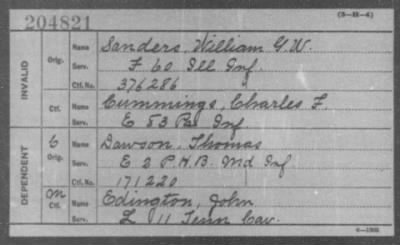 204821
(3-H-4)
INVALID
Orig.
Name Sanders, William G.W.
Serv. F 60 Ill Inf
Ctf. No. 376286
Ctf.
Name Cummings, Charles F.
Serv. E 53 Pa Inf
DEPENDENT
6
Orig.
Name Dawson, Thomas
Serv. E 2 P.H.B. Md Inf
Ctf. No. 171220
On
Ctf.
Name Edington, John
Serv. L 11 Tenn Cav.